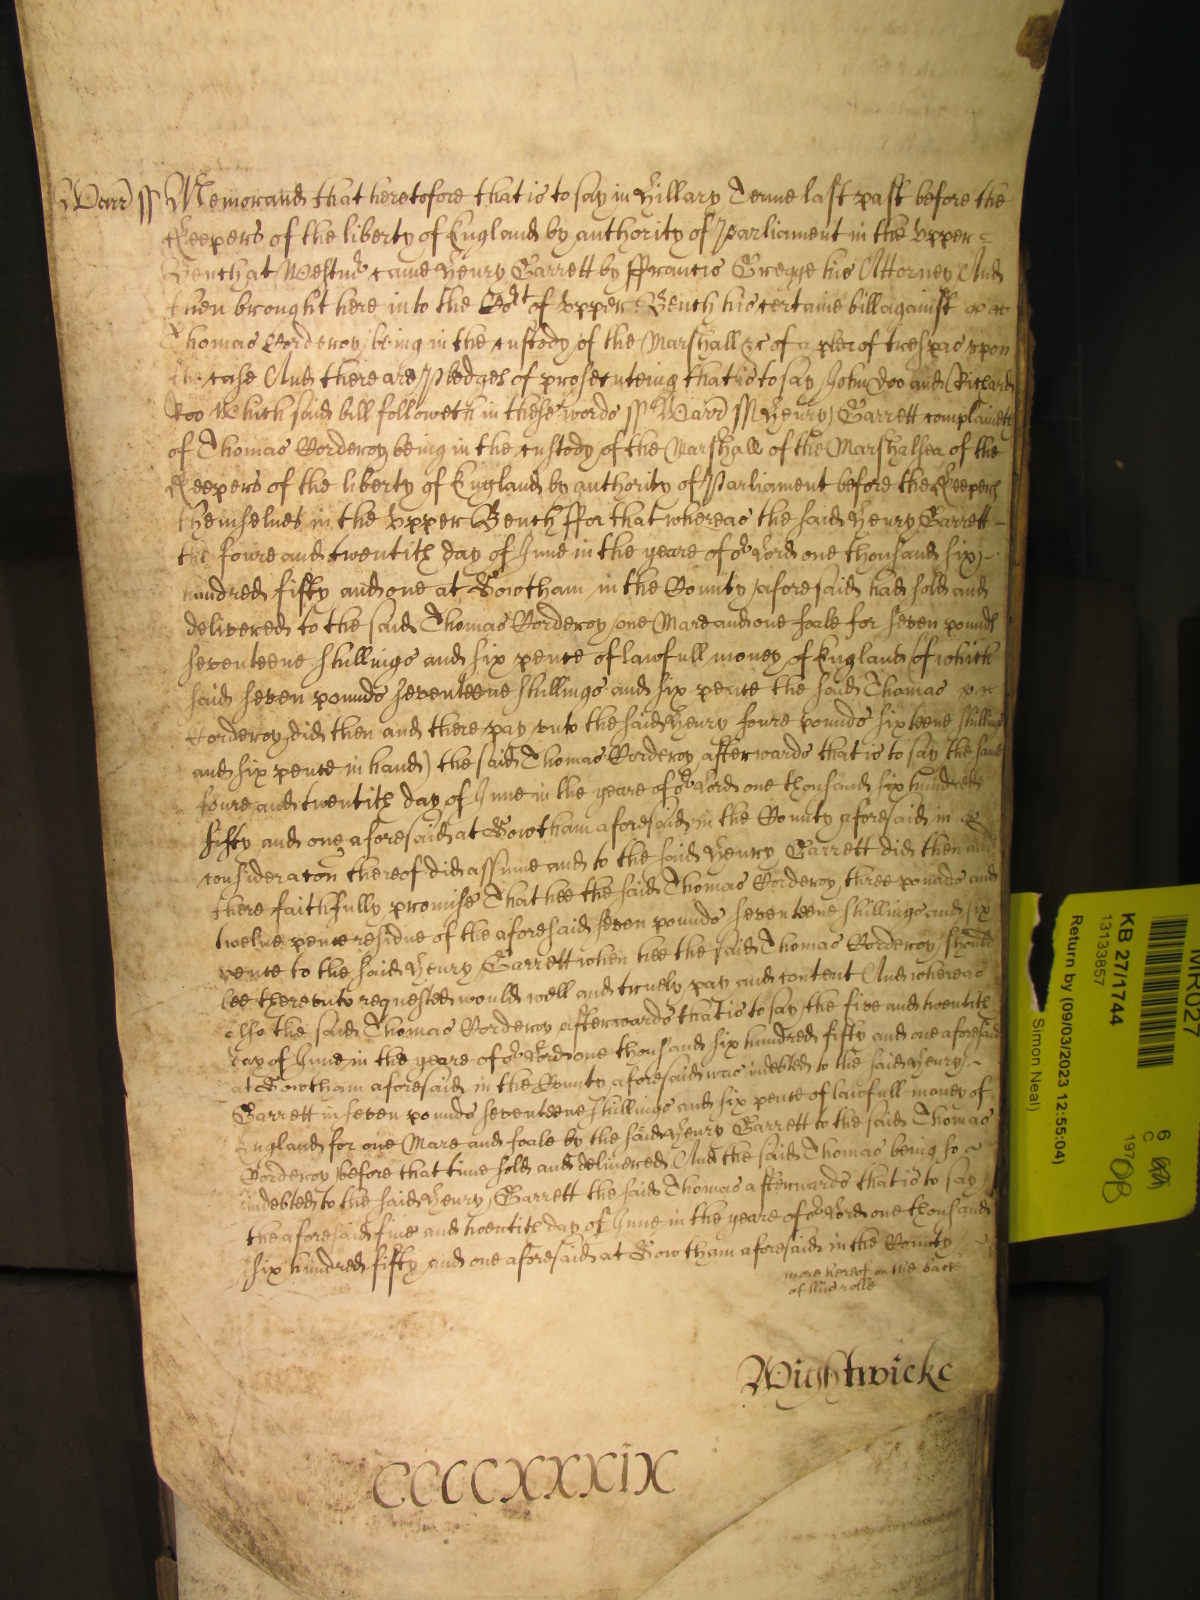 Warr ss Memorand that heretofore that is to say in Hillary Terme last past before the
Keepers of the liberty of England by authority of Parliament in the Upper =
Bench at Westmr came Henry Garrett by ffrancis Gregge his Attorney And
then brought here into the Cort of Upper Bench his certaine bill against
Thomas Corderoy being in the custody of the Marshall &c of a plea of trespas upon
the case And there are Pledges of prosecuteing that is to say John Doo and Richard
Roo Which said bill followeth in these words ss Warr ss Henry Garrett complaineth
of Thomas Corderoy being in the custody of the Marshall of the Marshalsea of the
Keepers of the liberty of England by authority of Parliament before the Keepers
themselues in the Upper Bench ffor that whereas the said Henry Garrett
the foure and twentith day of June in the yeare of or Lord one thousand six
hundred fifty and one at Sowtham in the County aforesaid had sold and
delivered to the said Thomas Corderoy one Mare and one foale for seven pounds
seventeene shillings and six pence of lawfull money of England (of which
said seven pounds seventeene shillings and six pence the said Thomas
Corderoy did then and there pay unto the said Henry foure pounds sixteene shillings
and six pence in hand) the said Thomas Corderoy afterwards that is to say the same
foure and twentith day of June in the yeare of or Lord one thousand six hundred
fifty and one aforesaid at Sowtham aforesaid in the County aforesaid in
consideracon thereof did assume and to the said Henry Garrett did then and
there faithfully promise That hee the said Thomas Corderoy three pounds and
twelue pence residue of the aforesaid seven pounds seventeene shillings and six
pence to the said Henry Garrett when hee the said Thomas Corderoy should
bee thereunto requested would well and truely pay and content And whereas
also the said Thomas Corderoy afterwards that is to say the five and twentith
day of June in the yeare of or Lord one thousand six hundred fifty and one aforesaid
at Sowtham aforesaid in the County aforesaid was indebted to the said Henry
Garrett in seven pounds seventeene shillings and six pence of lawfull money of
England for one Mare and foale by the said Henry Garrett to the said Thomas
Corderoy before that time sold and delivered And the said Thomas being so
indebted to the said Henry Garrett the said Thomas afterwards that is to say
the aforesaid fiue and twentith day of June in the yeare of or Lord one thousand
six hundred fifty and one aforesaid at Sowtham aforesaid in the County
more hereof on the backe
of this rolle
Wightwicke
CCCCXXXIX
MR027
KB 27/1744
13133857
Return by (09/03/2023 12:55:04)
Simon Neal)
6
C
197